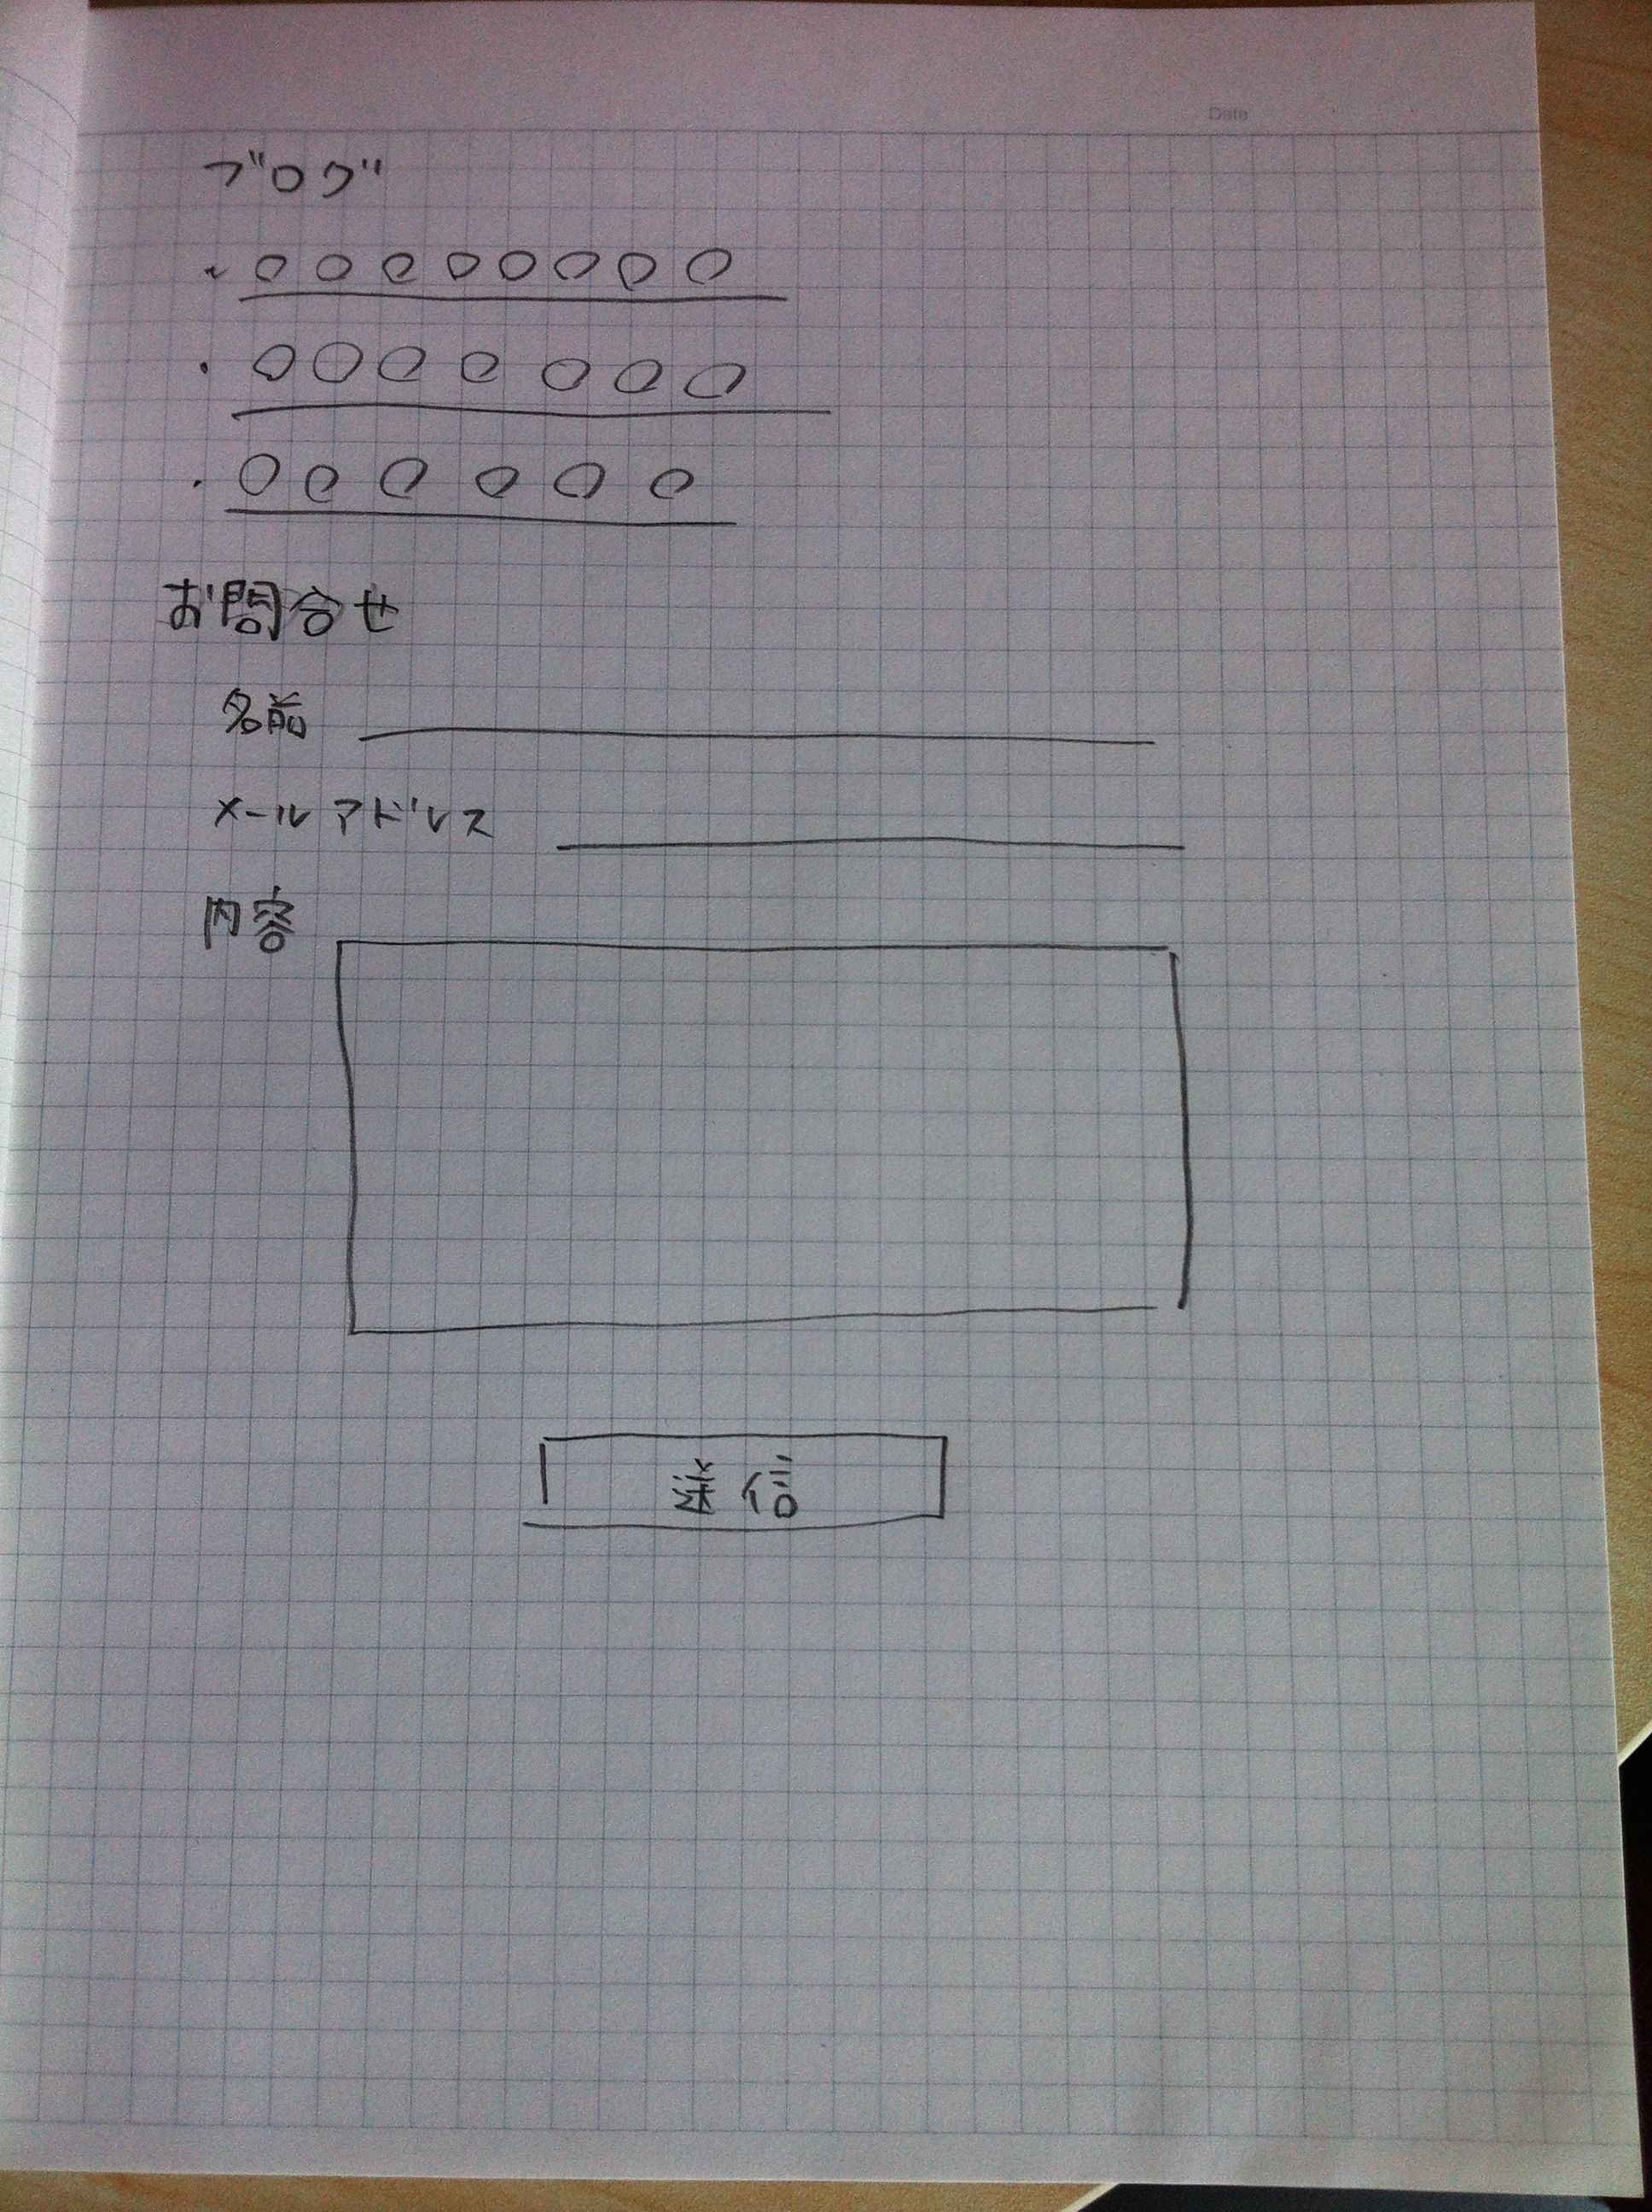 Date
ブログ
・○○○○○○○○
・○○○○○○○
・○○○○○○
お問合せ
名前
メールアドレス
内容
送信